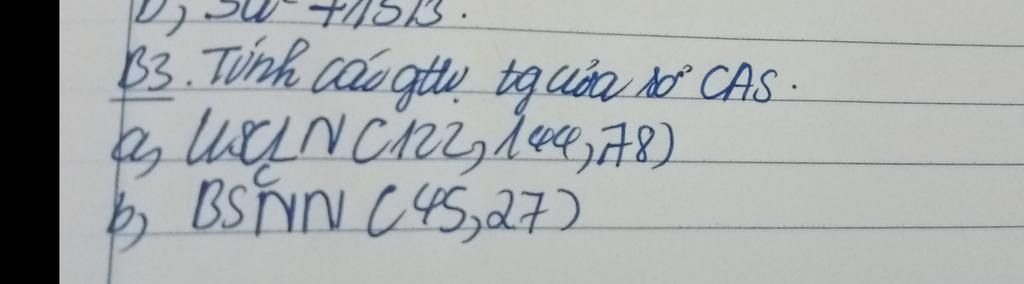 B3. Tính các gttr tg của số CAS.
a, ƯCLN (122, 144, 78)
b, BSCNN (45, 27)